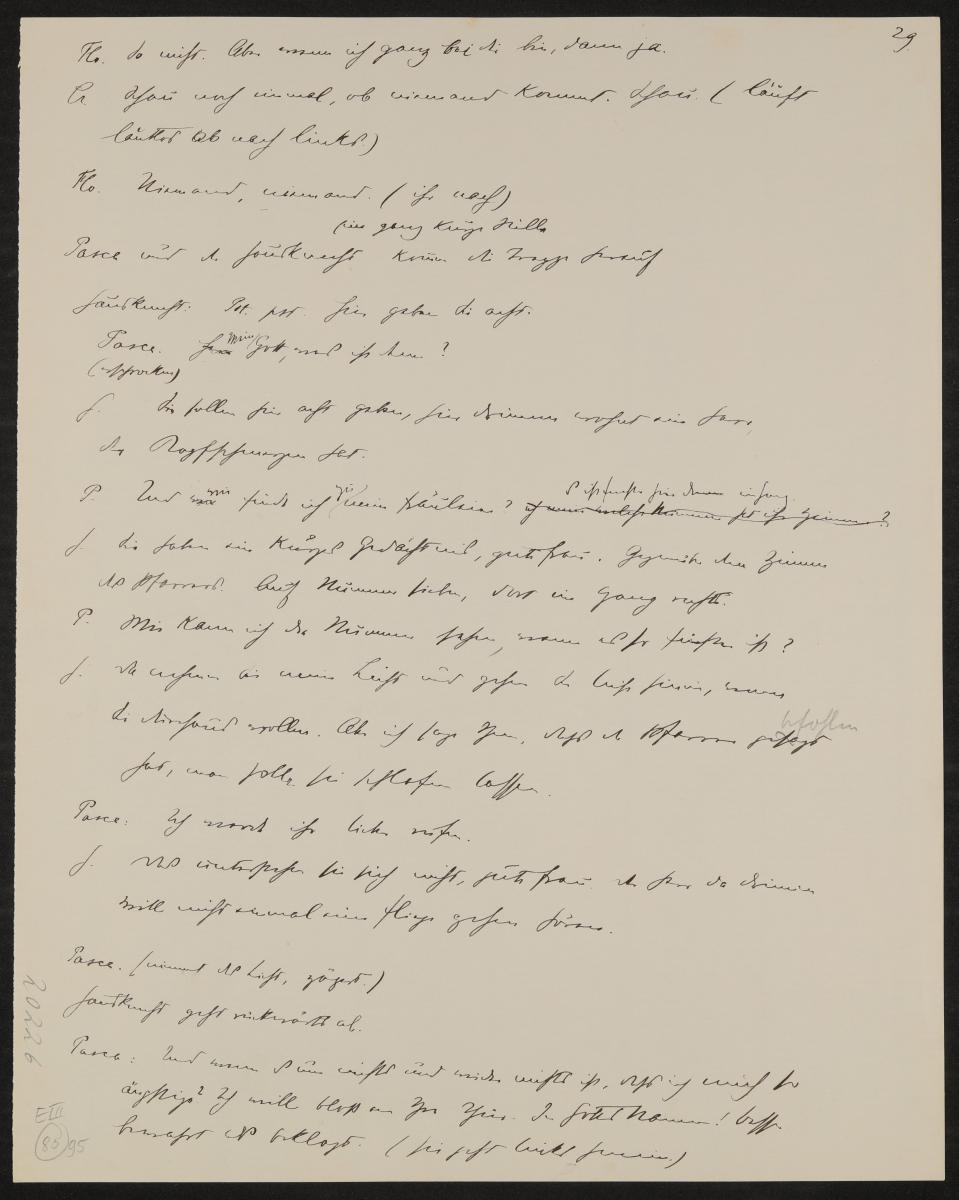 29
Flo. So nicht. Aber wenn ich ganz bei dir bin, dann ja.
Cr. Schau noch einmal, ob niemand kommt. Schau. (läuft
lautlos ab nach links)
Flo. Niemand, niemand. (ihr nach)
(eine ganz kurze Stille
Pasca und der Hausknecht kommen die Treppe herauf
Hausknecht: Pst. pst. hier geben Sie acht.
Pasca. mein Gott, was ist denn?
(erschrocken)
H. Sie sollen hier acht geben, hier drinnen wohnt ein Herr,
der Kopfschmerzen hat.
's ist finster hier drinnen im Gang.
P. Und wie finde ich zu mein Fräulein? welche Nummer hat ihr Zimmer?
H. Sie haben ein kurzes Gedächtnis, gute Frau. Gegenüber dem Zimmer
des Pfarrers. Auf Nummer sieben, dort im Gang rechts.
P. Wie kann ich die Nummer sehen, wenn es so finster ist?
H. Da nehmen Sie mein Licht und gehen Sie leise hinein, wenn
befohlen
Sie durchaus wollen. Aber ich sage Ihnen, dass der Pfarrer gesagt
hat, man solle sie schlafen lassen.
Pasca: Ich werde ihr lieber rufen.
H. Das unterstehen Sie sich nicht, gute Frau. Der Herr da drinnen
will nicht einmal eine Fliege gehen hören.
Pasca. (nimmt das Licht, zögert.)
Hausknecht geht rückwärts ab.
Pasca: Und wenn 's nun nichts und wieder nichts ist, dass ich mich so
ängstige? Ich will bloss an ihre Thür. In Gottes Namen! besser
bewahrt als beklagt. (sie geht links hinein.)
20226
E III
85
95